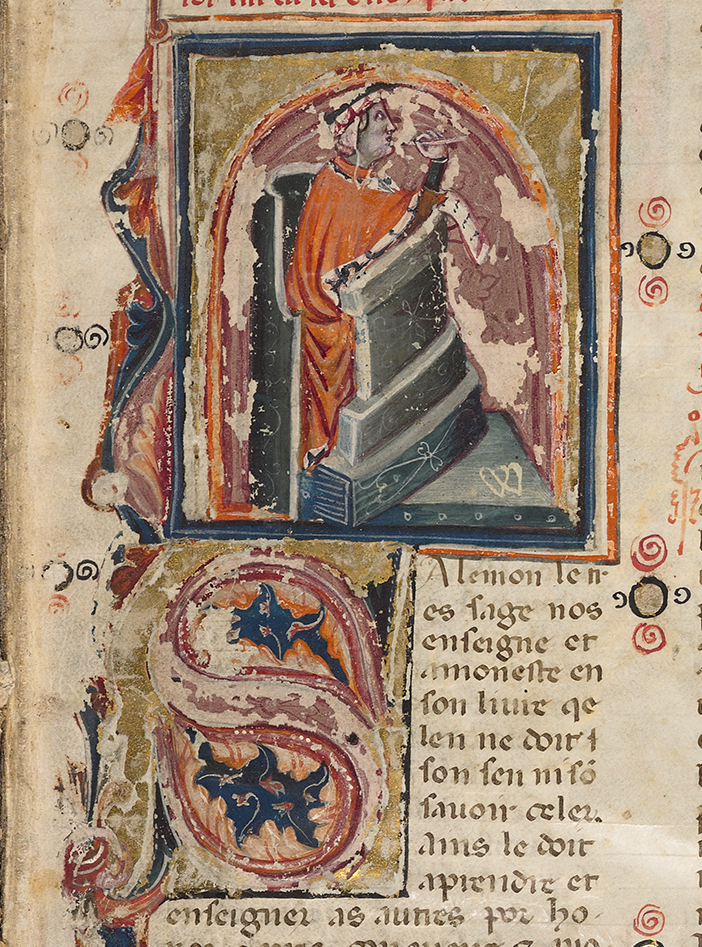 S
Alemon le tr-
es sage nos
enseigne et
amoneste en
son livre qe
len ne doit
son sen ni sō
savoir celer.
ains le doit
aprendre et
enseigner as autres por ho-